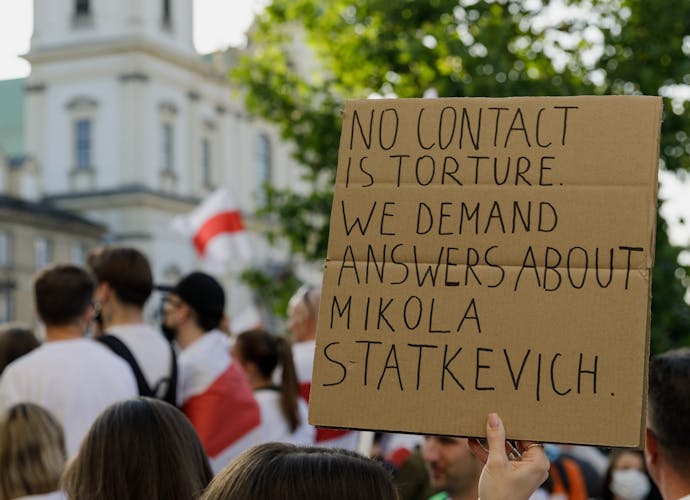 NO CONTACT
IS TORTURE.
WE DEMAND
ANSWERS ABOUT
MIKOLA
STATKEVICH.